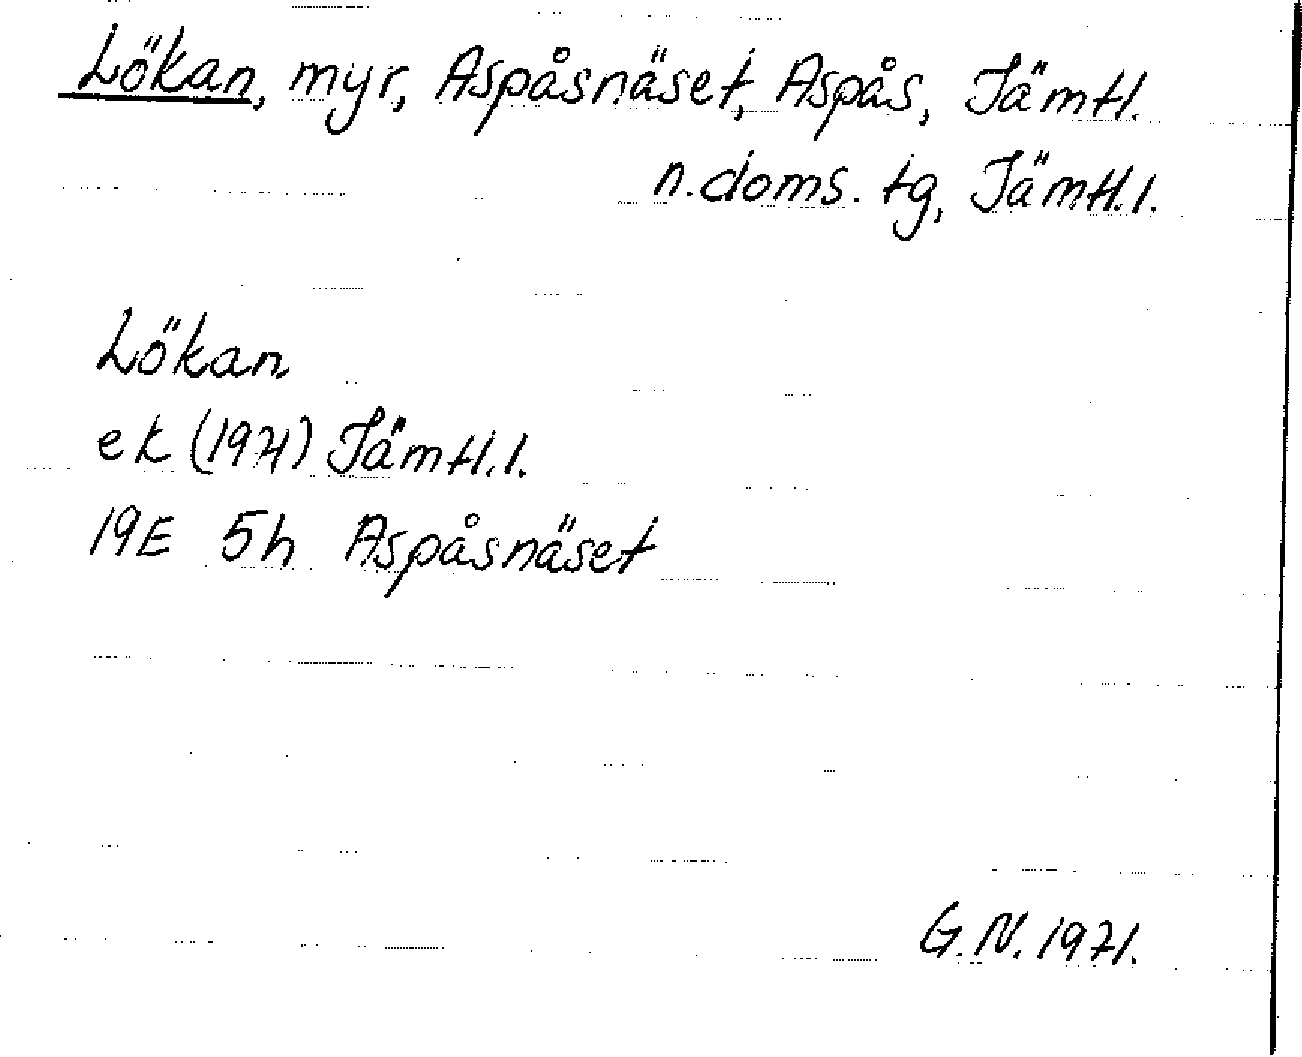 Lökan, myr, Aspåsnäset, Aspås, Jämtl.
n. doms. tg, Jämtl. l.
Lökan
ek (1971) Jämtl. l.
19E 5h Aspåsnäset
G. N. 1971.